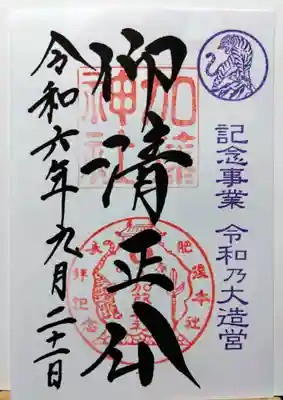 記念事業 令和乃大造営
仰清正公
加藤
神社
令和六年九月二十一日